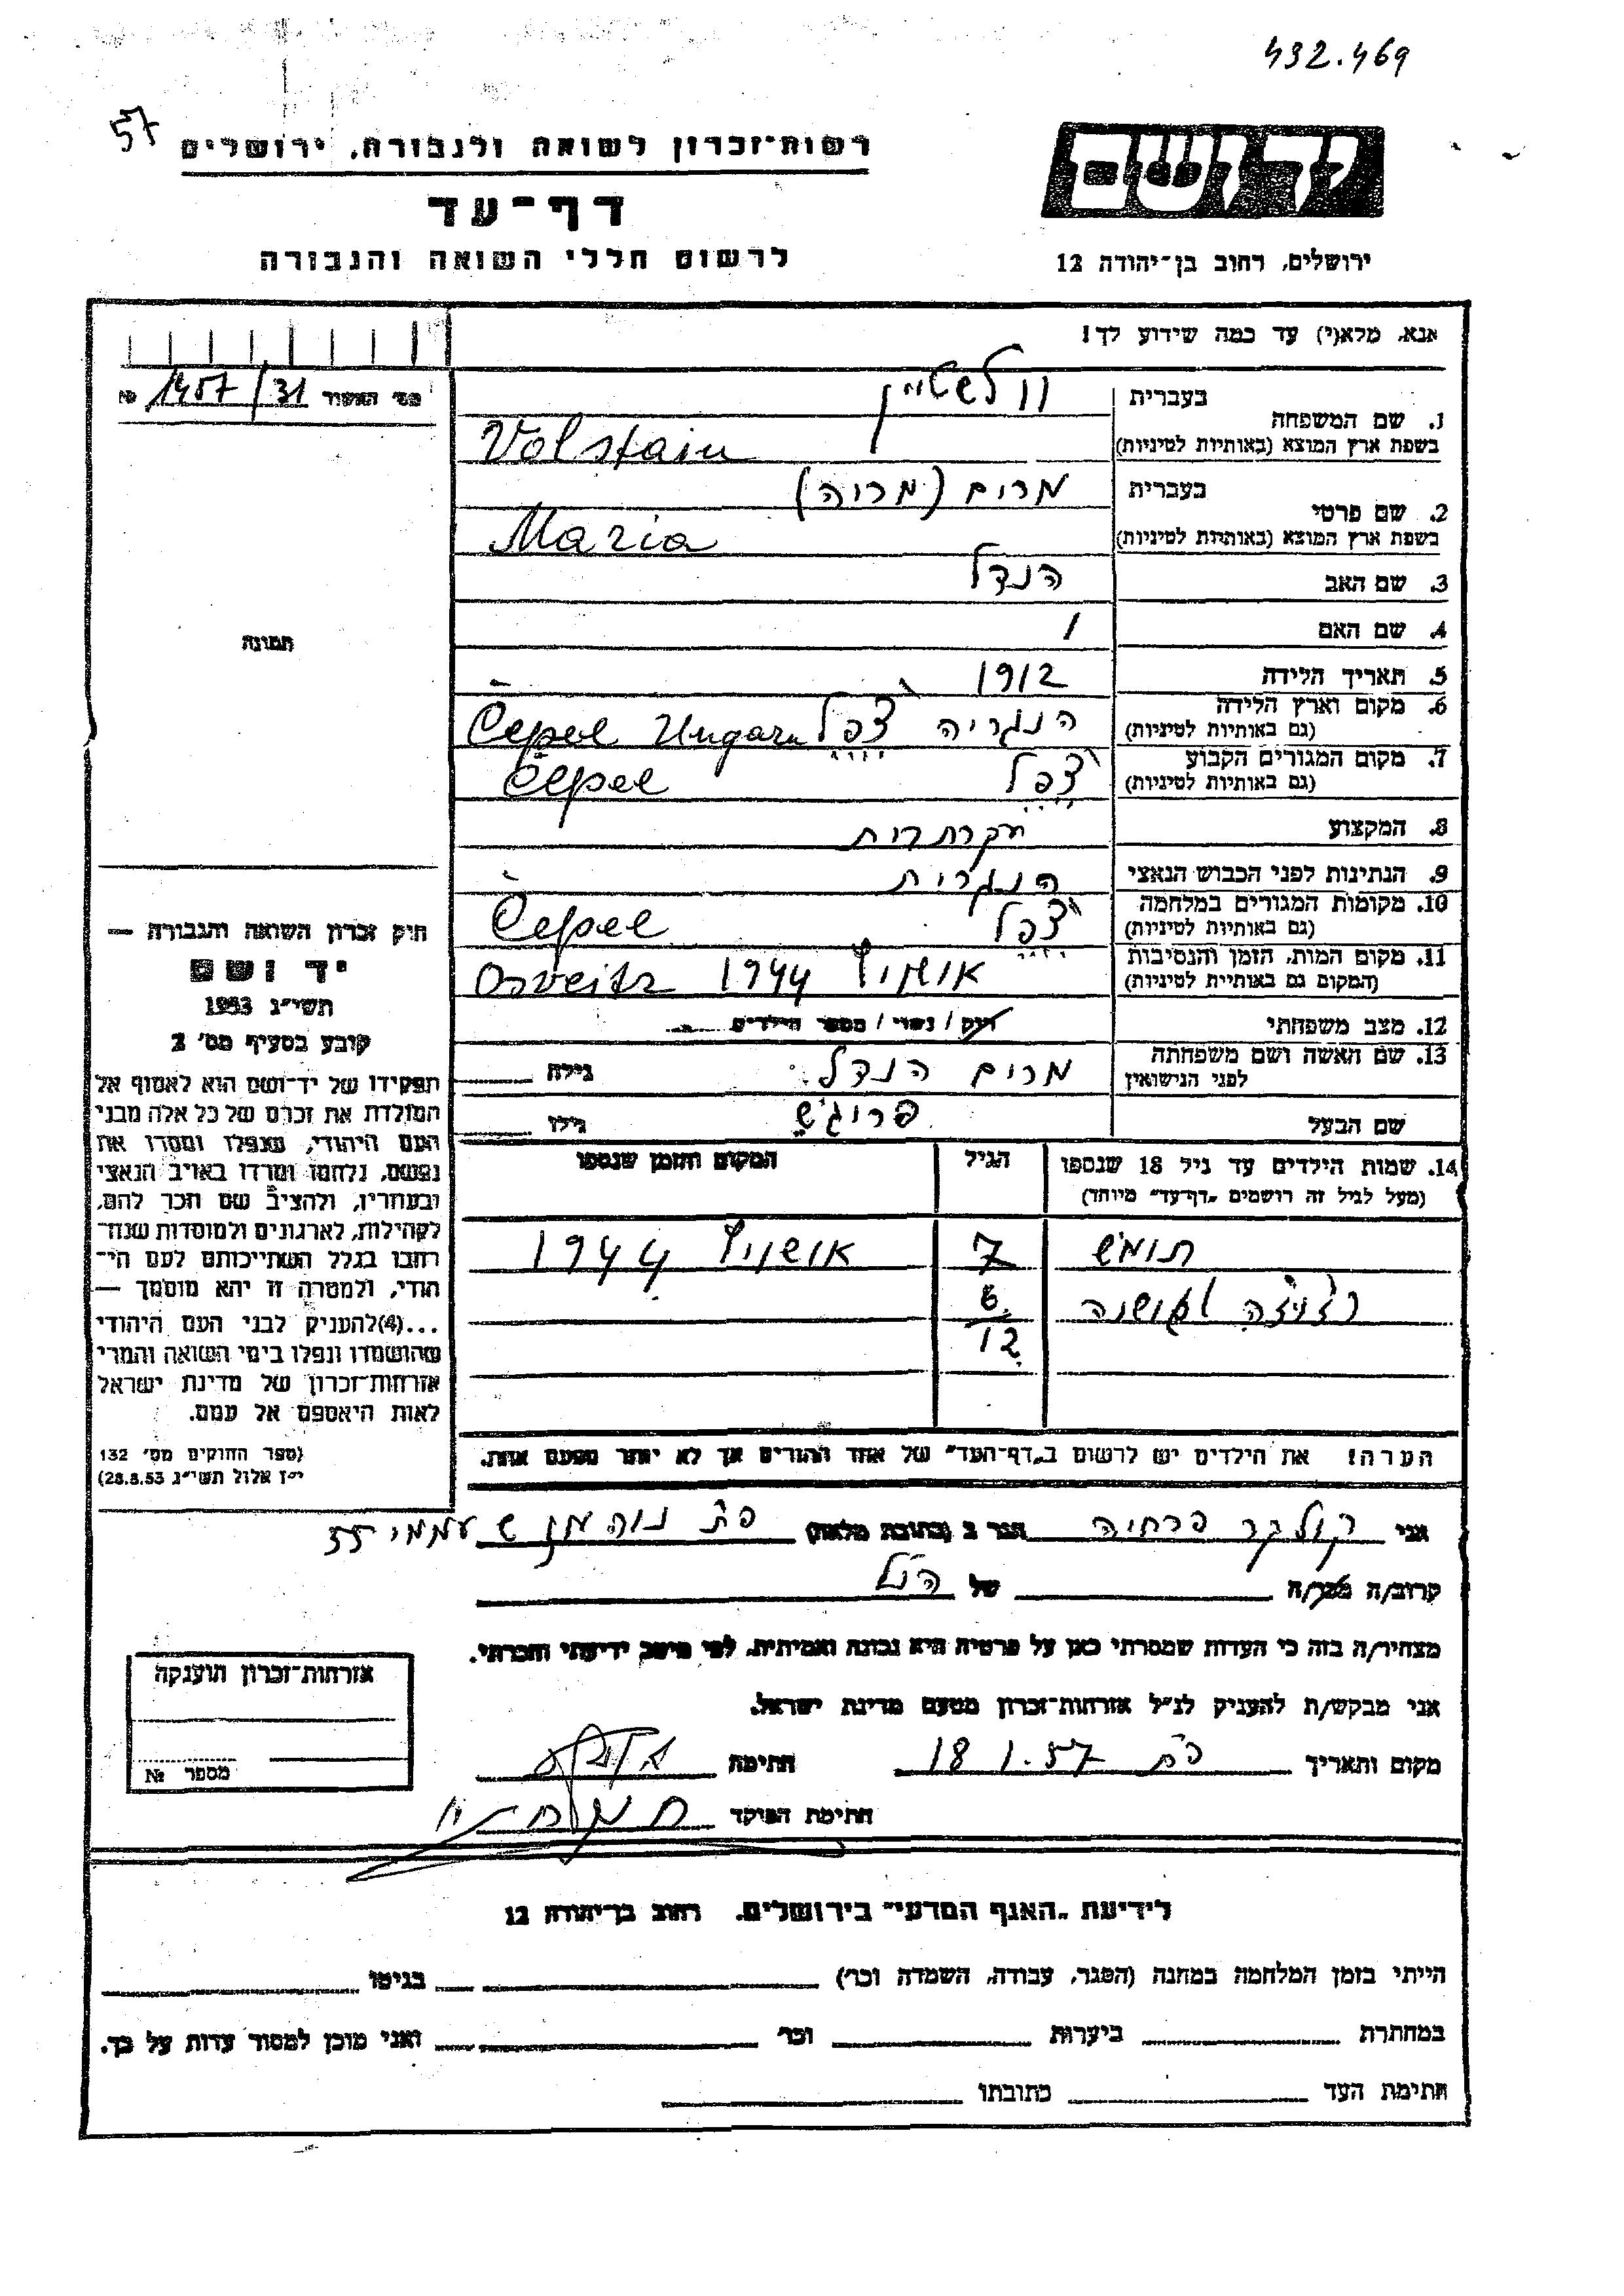 432.469
57
רשות־זכרון לשואה ולגבורה, ירושלים
יד ושם
דף־עד
לרשום חללי השואה והגבורה
ירושלים, רחוב בן־יהודה 12
אנא, מלא(י) עד כמה שידוע לך!
מס׳ האשור 1457/31 №
1. שם המשפחה
בעברית וולשטיין
בשפת ארץ המוצא (באותיות לטיניות) Volstain
2. שם פרטי
בעברית מרים (מריה)
בשפת ארץ המוצא (באותיות לטיניות) Maria
3. שם האב הנדל
4. שם האם /
תמונה
5. תאריך הלידה 1912
6. מקום וארץ הלידה הנגריה צ'פל Čepel Ungarn
(גם באותיות לטיניות)
7. מקום המגורים הקבוע צ'פל Čepel
(גם באותיות לטיניות)
8. המקצוע עקרת בית
9. הנתינות לפני הכבוש הנאצי הנגרית
10. מקומות המגורים במלחמה צ'פל Čepel
(גם באותיות לטיניות)
11. מקום המות, הזמן והנסיבות אושויץ 1944 Osveitz
(המקום גם באותיות לטיניות)
12. מצב משפחתי רווק / נשוי / מספר הילדים
13. שם האשה ושם משפחתה מרים הנדל גילה
לפני הנישואין
שם הבעל גילו
14. שמות הילדים עד גיל 18 שנספו הגיל המקום והזמן שנספו
(מעל לגיל זה רושמים „דף־עד״ מיוחד)
תומש 7 אושויץ 1944
6
12
הערה! את הילדים יש לרשום ב„דף־העד״ של אחד ההורים אך לא יותר מפעם אחת.
חוק זכרון השואה והגבורה —
יד ושם
תשי״ג 1953
קובע בסעיף מס׳ 2
תפקידו של יד־ושם הוא לאסוף אל
המולדת את זכרם של כל אלה מבני
העם היהודי, שנפלו ומסרו את
נפשם, נלחמו ומרדו באויב הנאצי
ובעוזריו, ולהציב שם וזכר להם,
לקהילות, לארגונים ולמוסדות שנח־
רבו בגלל השתייכותם לעם הי־
הודי, ולמטרה זו יהא מוסמך —
...(4)להעניק לבני העם היהודי
שהושמדו ונפלו בימי השואה והמרי
אזרחות־זכרון של מדינת ישראל
לאות היאספם אל עמם.
(ספר החוקים מס׳ 132
י״ז אלול תשי״ג 28.8.53)
אני פרחיה הגר ב (כתובת מלאה) פת עממי 55
קרוב/ה מכר/ה של הנ"ל
מצהיר/ה בזה כי העדות שמסרתי כאן על פרטיה היא נכונה ואמיתית, לפי מיטב ידיעתי והכרתי.
אני מבקש/ת להעניק לנ״ל אזרחות־זכרון מטעם מדינת ישראל.
מקום ותאריך פת 18.1.57 חתימה
חתימת הפוקד
אזרחות־זכרון הוענקה
מספר №
לידיעת „האגף המדעי״ בירושלים. רחוב בן־יהודה 12
הייתי בזמן המלחמה במחנה (הסגר, עבודה, השמדה וכו׳) בגיטו
במחתרת ביערות וכו׳ ואני מוכן למסור עדות על כך.
חתימת העד כתובתו